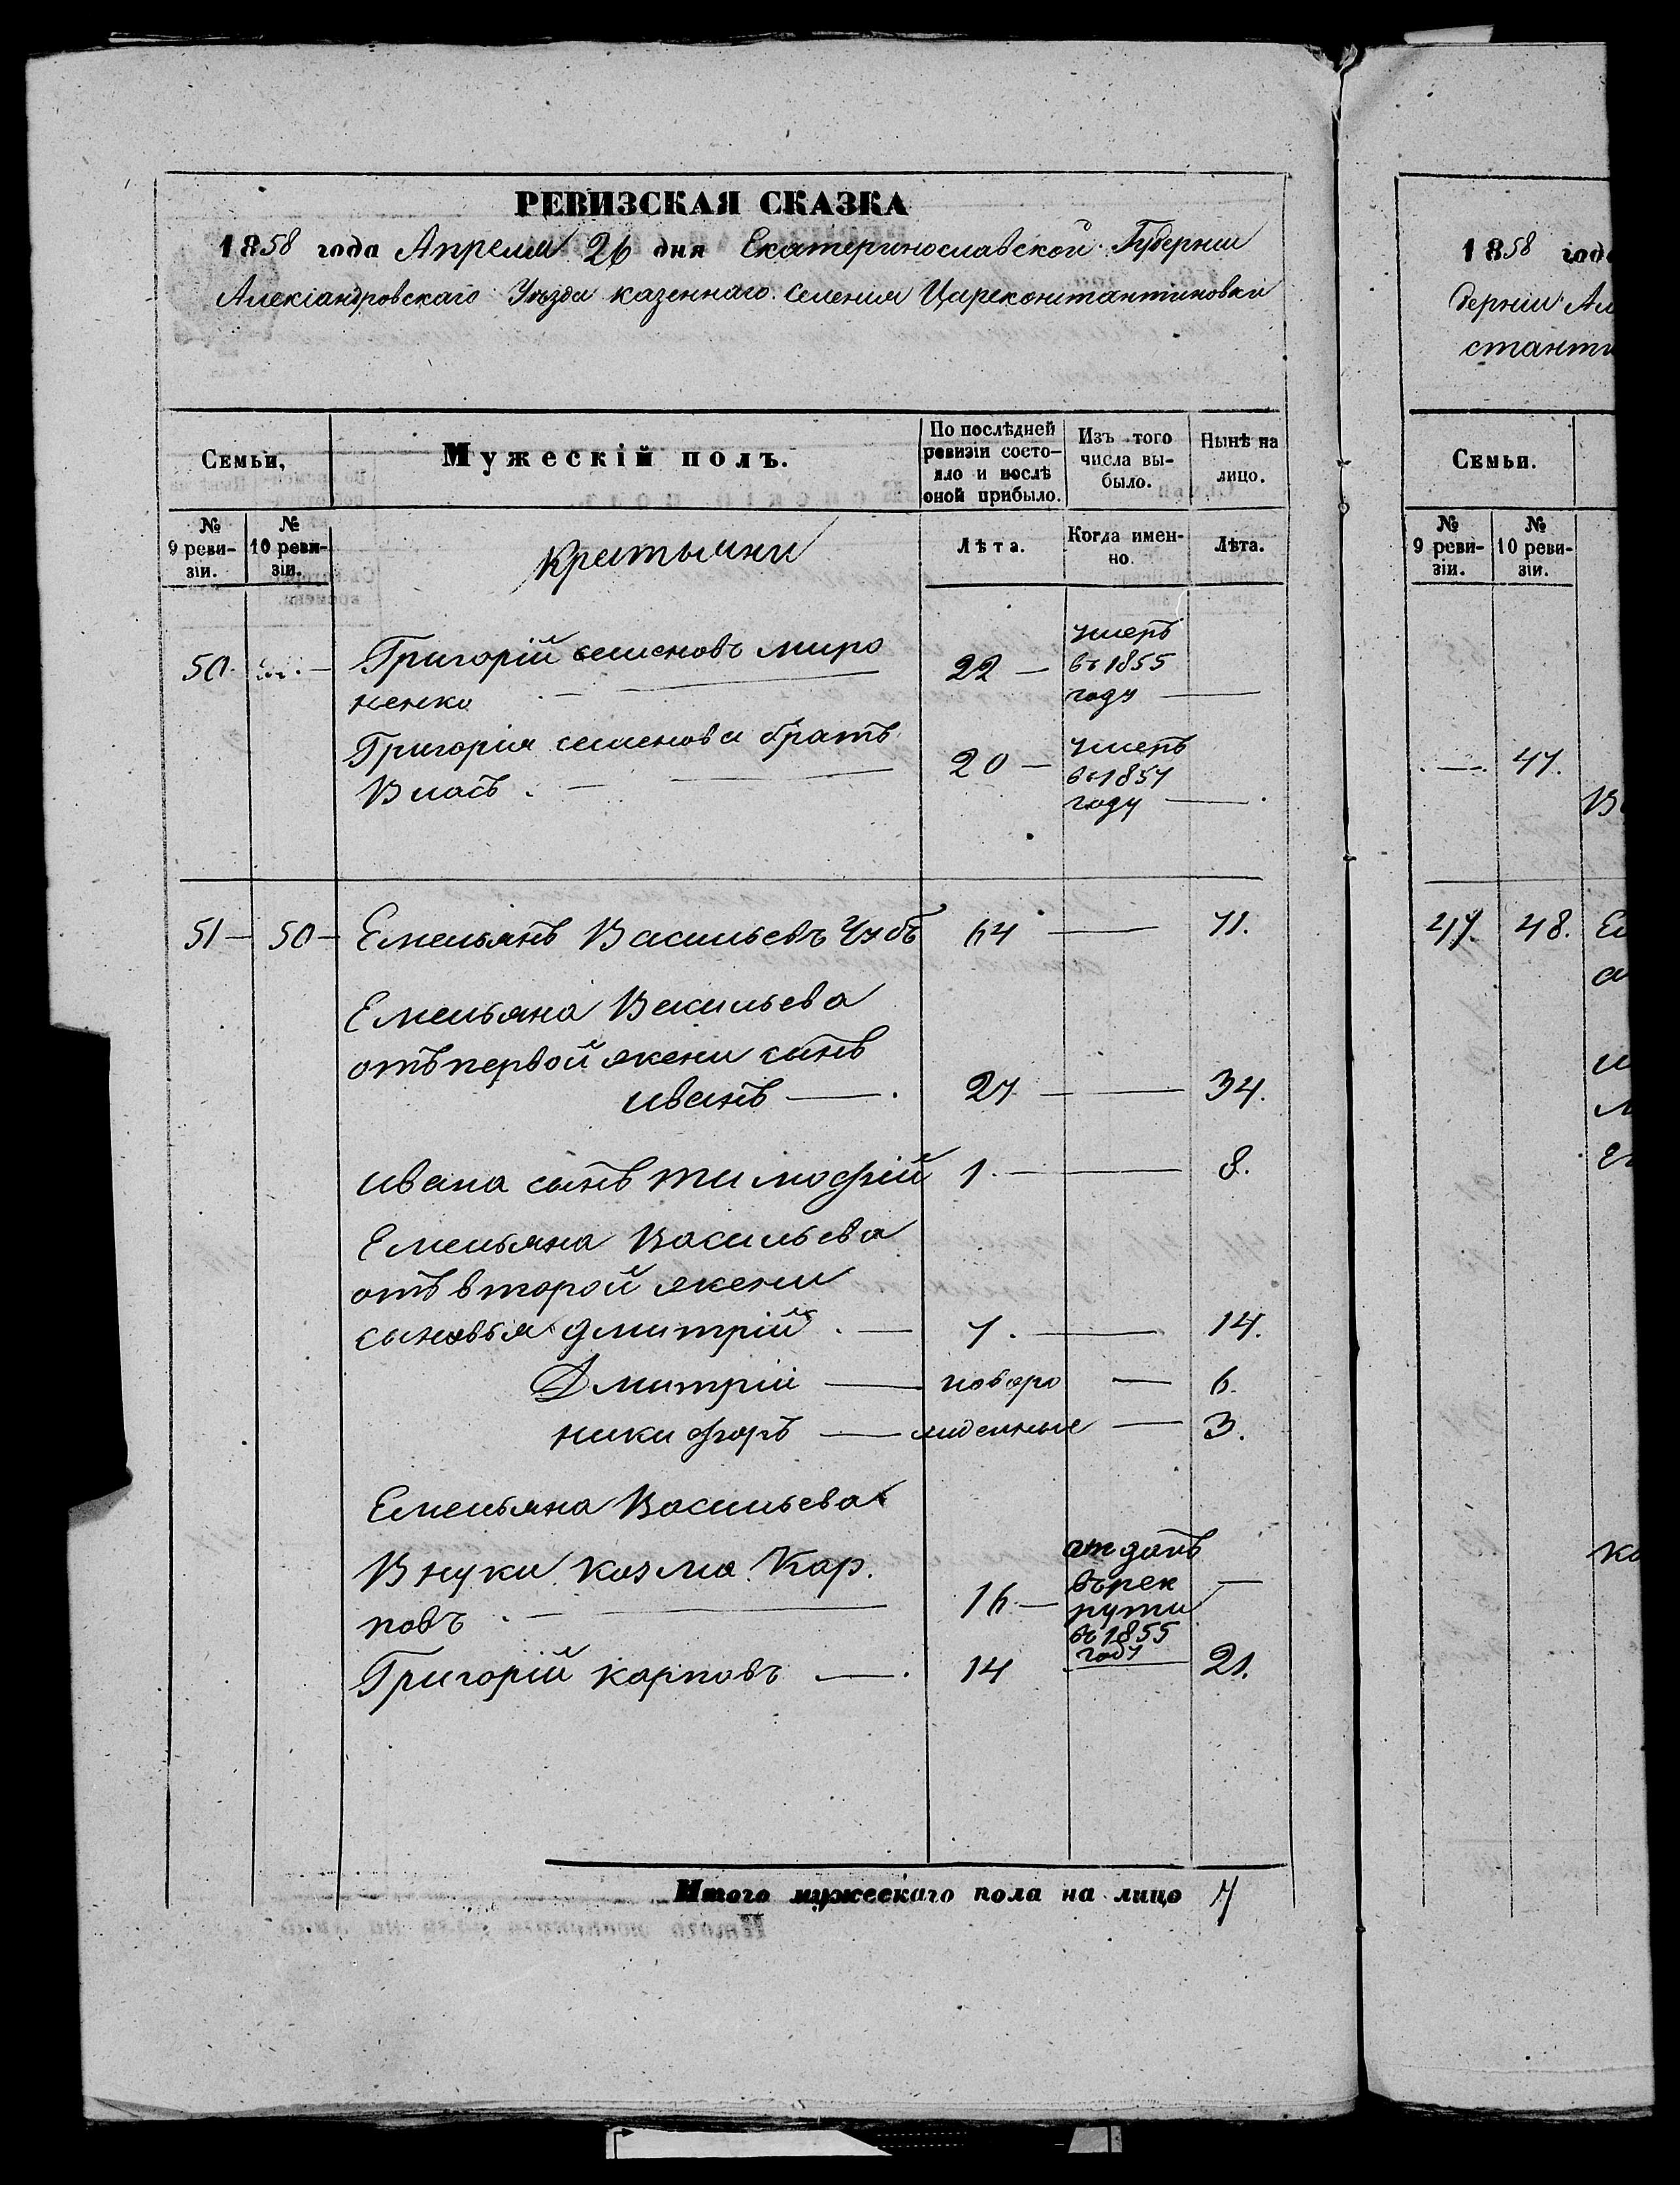 РЕВИЗСКАЯ СКАЗКА
1858 года Апреля 26 дня Екатеринославской Губернии
Александровскаго Уѣзда казеннаго Селения Цареконстантиновки
Семьи,
Мужескій полъ.
По послѣдней ревизіи состояло и послѣ оной прибыло.
Изъ того числа выбыло.
Нынѣ на лицо.
№ 9 ревизіи.
№ 10 ревизіи.
Крестьяни
Лѣта.
Когда именно.
Лѣта.
50.
Григорій семеновъ миро
ненко
22 —
умеръ
въ 1855
году —
Григорія семенова братъ
Власъ . —
20 —
умеръ
въ 1857
году —
51 — 50 — Емельянъ Васильевъ Чубъ 64 — 71.
Емельяна Васильева
отъ первой жени сынъ
иванъ — . 27 — 34.
ивана сынъ тимофій 1. — 8.
Емельяна Васильева
отъ второй жени
сыновья дмитрій . — 7. — 14.
Дмитрій — новоро — 6.
никифоръ — жденные — 3.
Емельяна Васильева
Внуки козма Кар.
повъ . —
16 —
отданъ
въ рек
рути
въ 1855
году
—
Григорій карповъ — . 14 — 21.
Итого мужескаго пола на лицо 7
1858 года
берніи Ал
станти
Семьи.
№ 9 ревизіи.
№ 10 ревизіи.
. — . 47.
47. 48. Ем